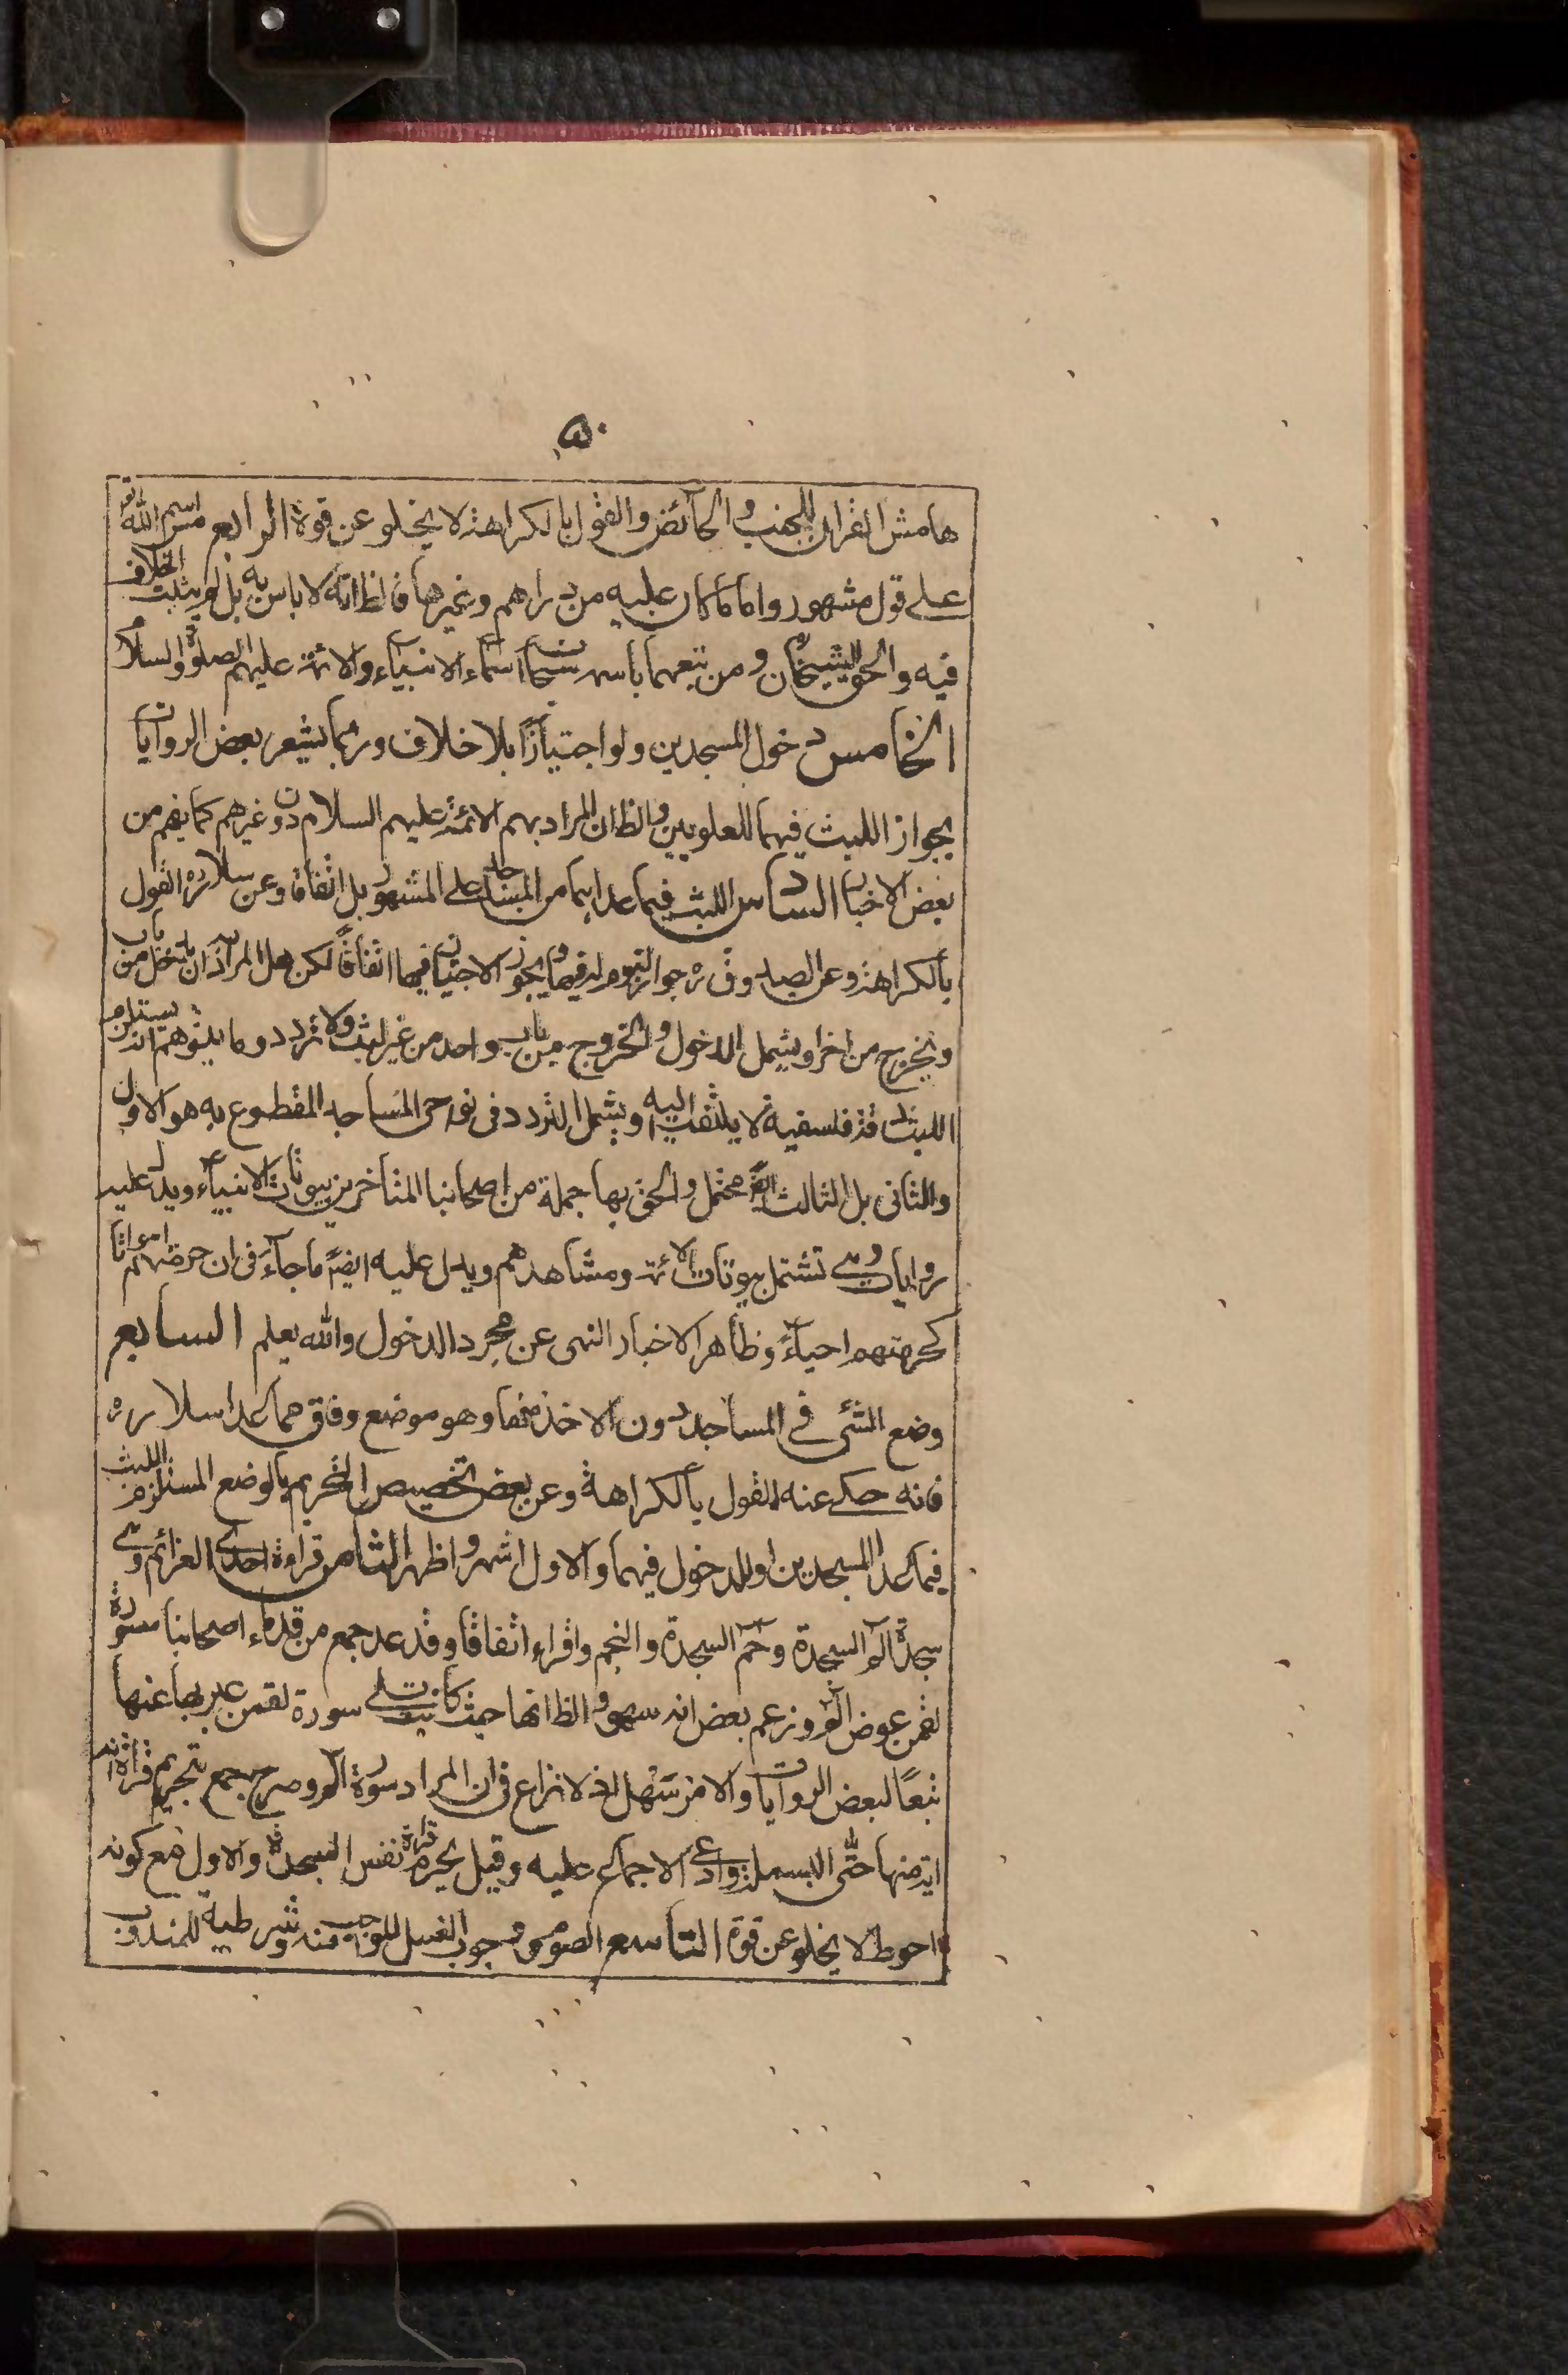 ٥٠
هامش القران للجنب والحائض والقول بالكراهة لا يخلو عن قوة الرابع مس اسم الله تع
على قول مشهور واما ما كان عليه من دراهم وغيرها فالظ انه لا باس به بل لم يثبت الخلاف
فيه والحق الشيخان ومن تبعهما باسمه سبحانه اسماء الانبياء والائمة عليهم الصلوة والسلام
الخامس دخول المسجدين ولو اجتيازًا بلا خلاف وربما يشعر بعض الروايات
بجواز اللبث فيهما للعلويين والظ ان المراد بهم الائمة عليهم السلام دون غيرهم كما يفهم من
بعض الاخبار السادس اللبث فيما عداهما من المساجد على المشهور بل اتفاقا وعن سلار ره القول
بالكراهة وعن الصدوق ره جواز النوم له فيها ويجوز الاجتياز فيها اتفاقًا لكن هل المراد به ان يدخل من باب
ويخرج من اخر او يشمل الدخول والخروج من باب واحد من غير لبث ولا تردد وما يتوهم انه يستلزم
اللبث فدقة فلسفية لا يلتفت اليه او يشمل التردد في نواحى المساجد المقطوع به هو الاول
والثانى بل الثالث ايضً محتمل والحق بها جملة من اصحابنا المتاخرين بيوتات الانبياء ويدل عليه
روايات وهى تشتمل بيوتات الائمة ومشاهدهم ويدل عليه ايضً ما جاء فى ان حرمتهم امواتا
كحرمتهم احياءً وظاهر الاخبار النهى عن مجرد الدخول والله يعلم السابع
وضع الشئ فى المساجد دون الاخذ منها وهو موضع وفاق مما عدا سلار ره
فانه حكى عنه القول بالكراهة وعن بعض تخصيص التحريم بالوضع المستلزم اللبث
فيما عدا المسجدين او للدخول فيهما والاول اشهر واظهر الثامن قراءة احدى العزائم وهى
سجدة الم السجدة وحم السجدة والنجم واقراء اتفاقا وقد عد جمع من قدماء اصحابنا سورة
لقمن عوض الم وزعم بعض انه سهو والظ انها حيث كانت تلى سورة لقمن عبر بها عنها
تبعًا لبعض الروايات والامر سهل اذ لا نزاع فى ان المراد سورة الم وصرح جمع بتحريم قراءة اية
اية منها حتى البسملة وادعى الاجماع عليه وقيل يحرم قراءة نفس السجدة والاول مع كونه
احوط لا يخلو عن قوة التاسع الصوم ووجوب الغسل للواجب منه وشرطية للمندوب